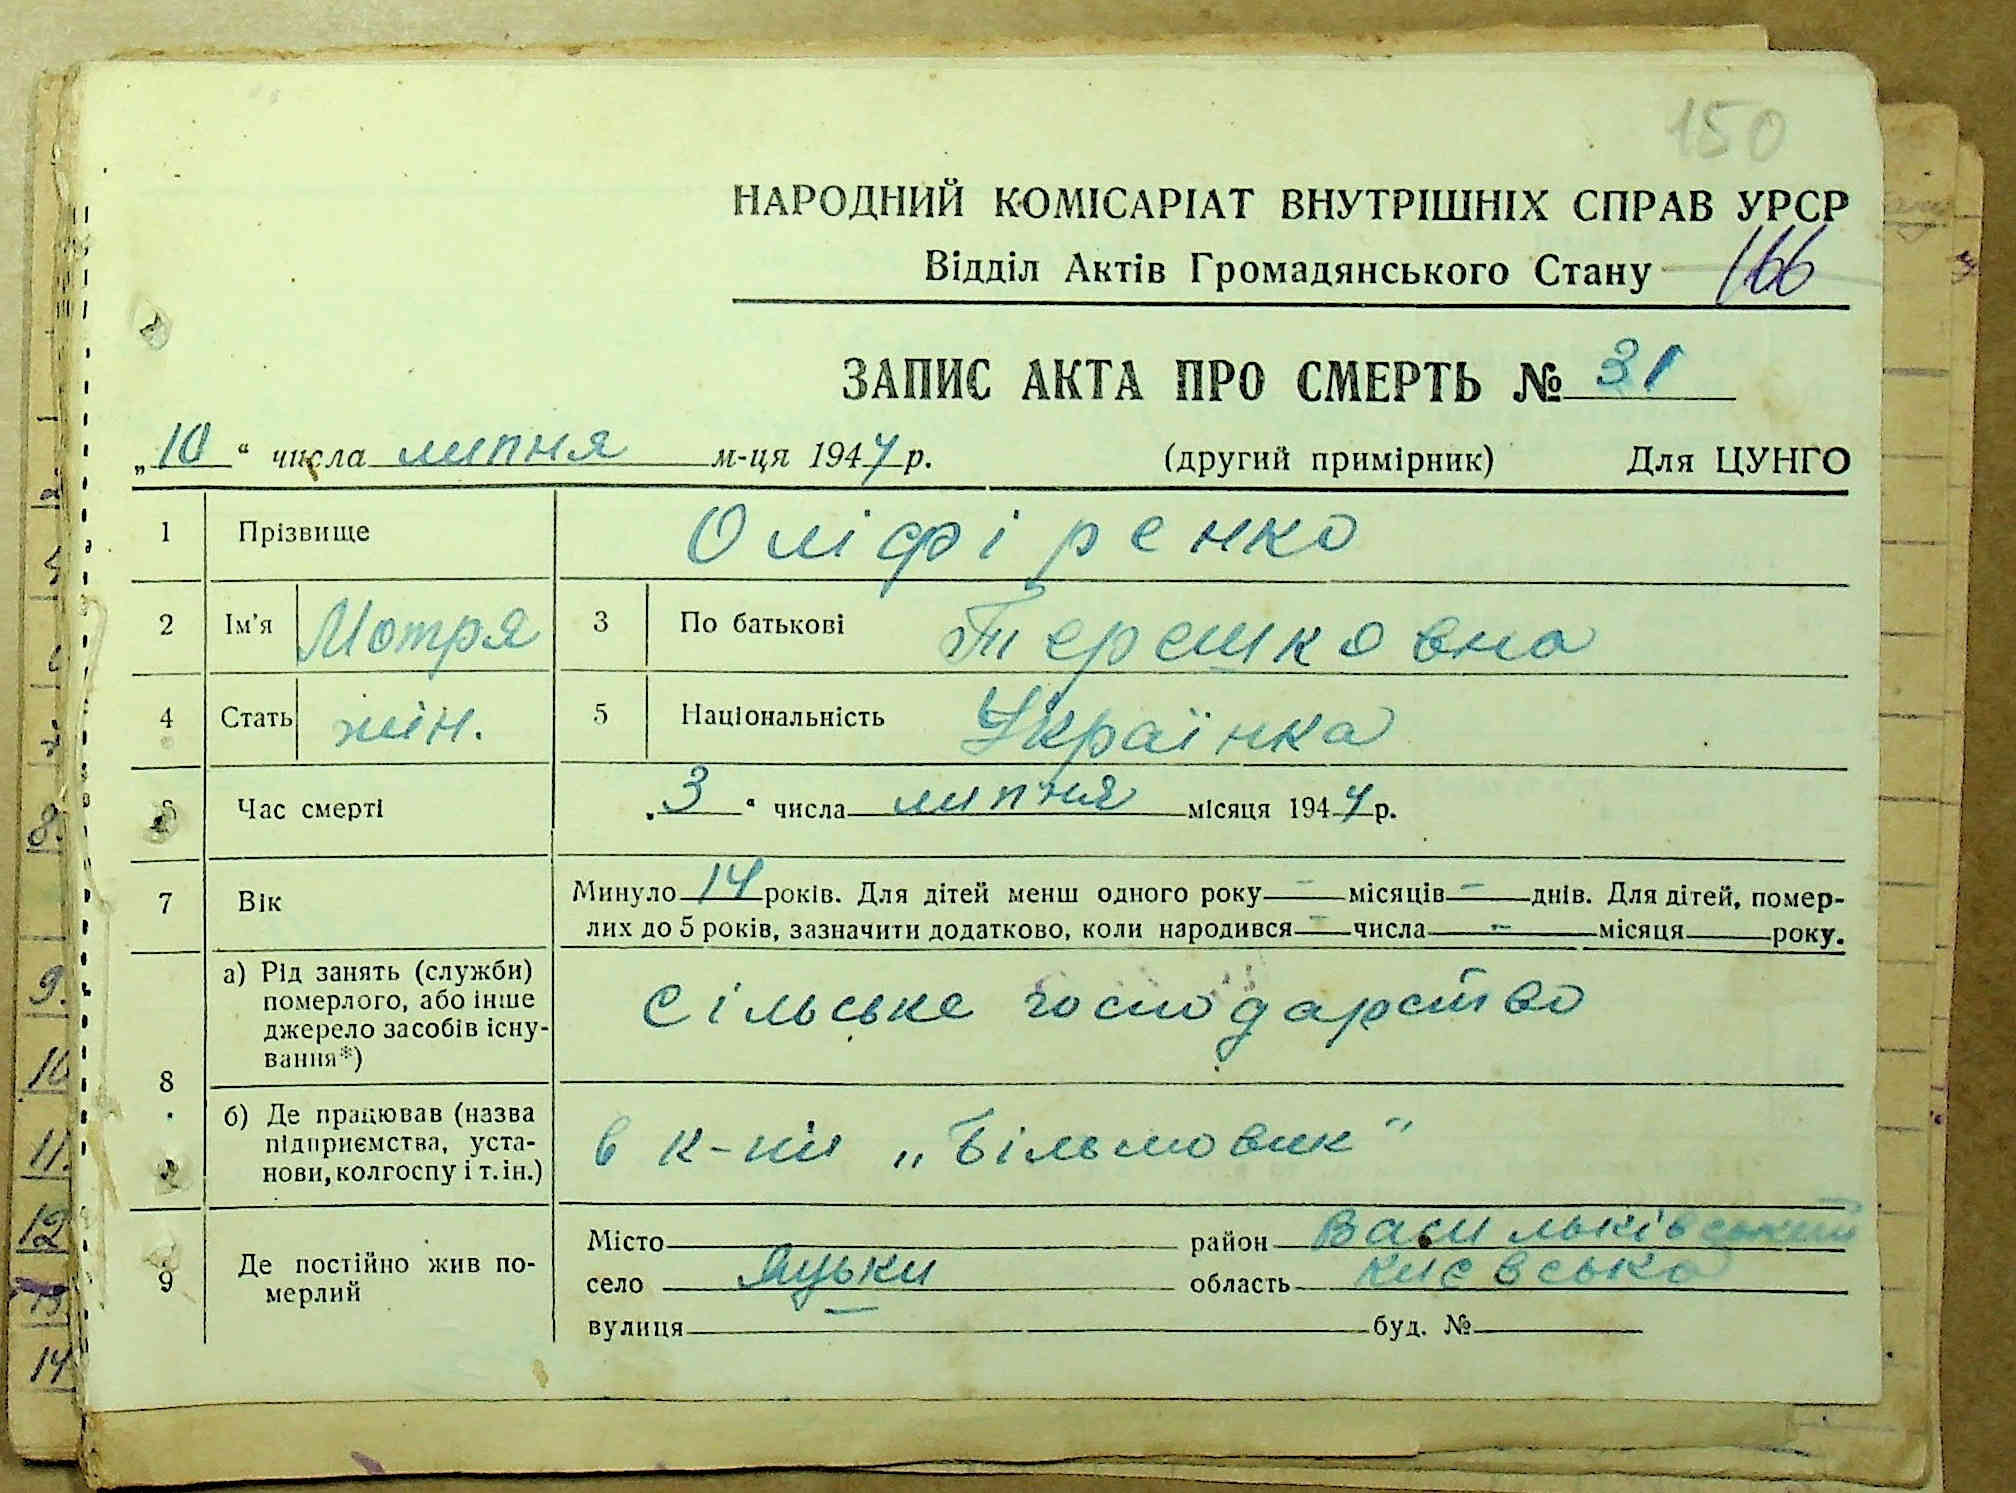 150
НАРОДНИЙ КОМІСАРІАТ ВНУТРІШНІХ СПРАВ УРСР
Відділ Актів Громадянського Стану 166
ЗАПИС АКТА ПРО СМЕРТЬ № 31
„10“ числа липня м-ця 1944 р. (другий примірник) Для ЦУНГО
1 Прізвище Оліфіренко
2 Ім'я Мотря 3 По батькові Терешковна
4 Стать жін. 5 Національність Українка
6 Час смерті „3“ числа липня місяця 1944 р.
7 Вік Минуло 14 років. Для дітей менш одного року — місяців — днів. Для дітей, помер-
лих до 5 років, зазначити додатково, коли народився — числа — місяця року.
8 а) Рід занять (служби)
померлого, або інше
джерело засобів існу-
вання*)
сільське господарство
б) Де працював (назва
підприємства, уста-
нови, колгоспу і т. ін.)
в к-пі „Більшовик"
9 Де постійно жив по-
мерлий
Місто район Васильківський
село Яцьки область Києвська
вулиця буд. №
8.
9.
10
11.
12
13
14